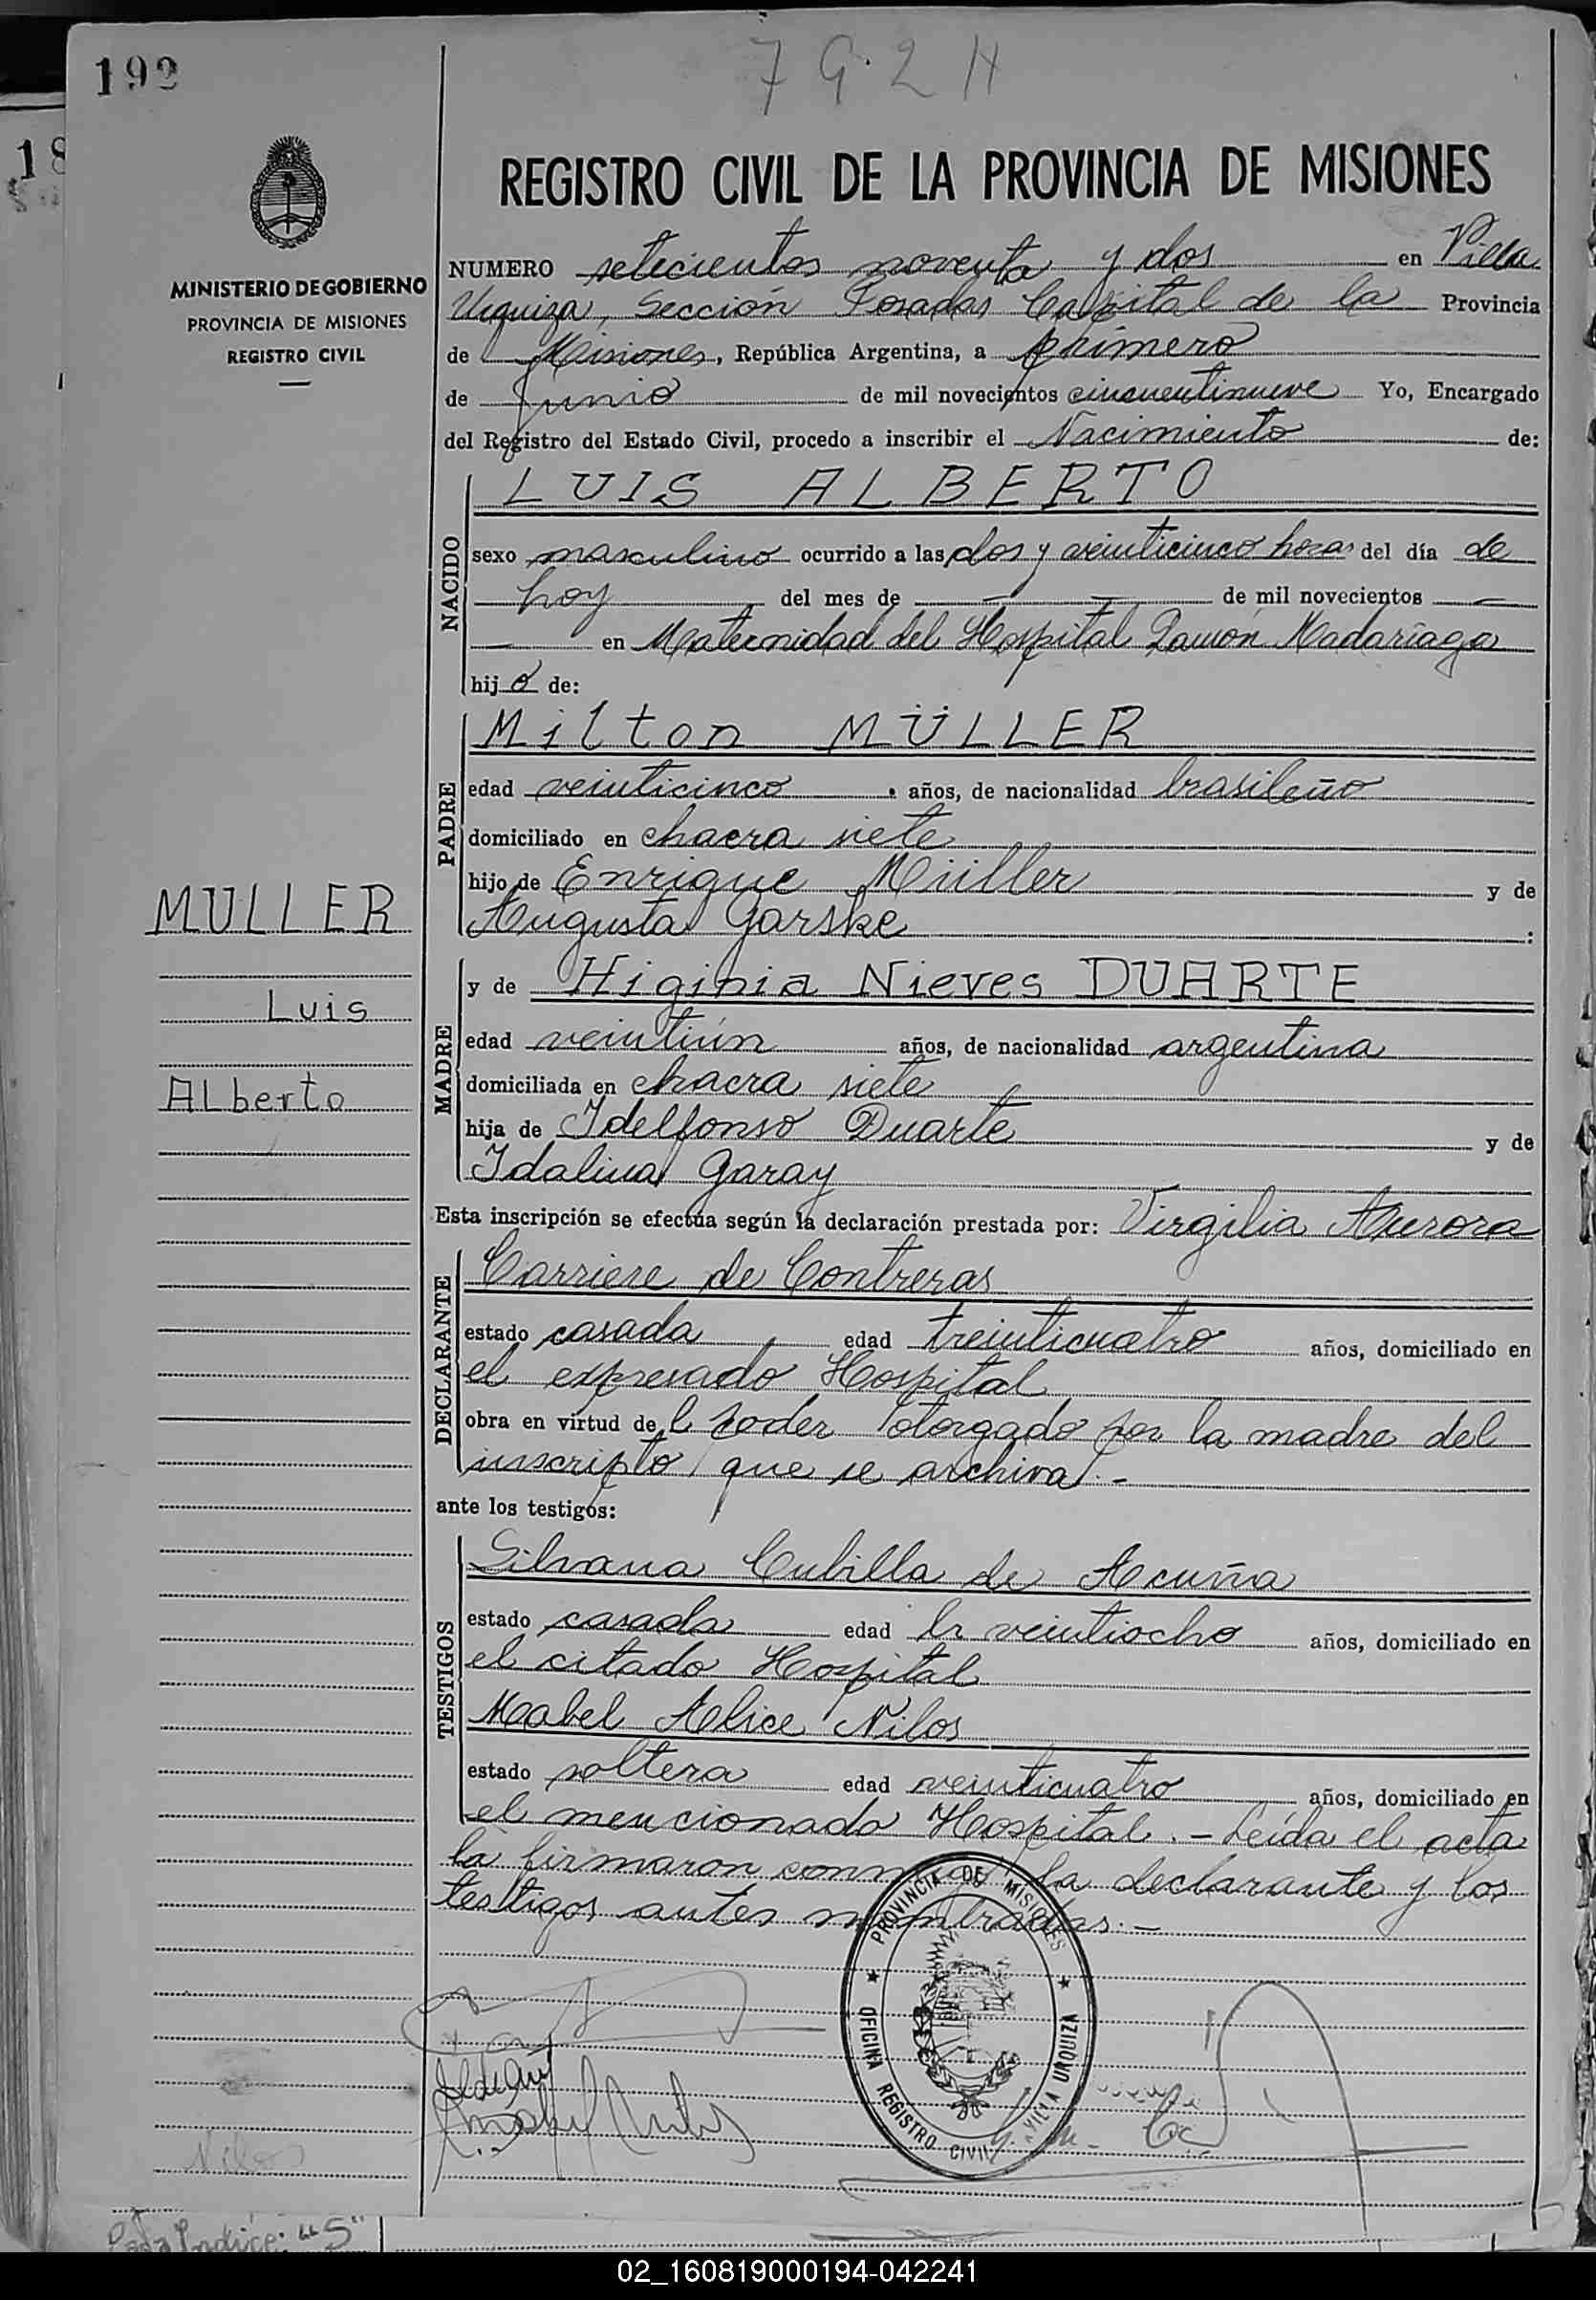 192
7 9 2 H
18
REGISTRO CIVIL DE LA PROVINCIA DE MISIONES
MINISTERIO DE GOBIERNO
PROVINCIA DE MISIONES
REGISTRO CIVIL
NUMERO setecientos noventa y dos en Villa
Urquiza, Sección Posadas Capital de la Provincia
de Misiones, República Argentina, a primero
de Junio de mil novecientos cincuentinueve Yo, Encargado
del Registro del Estado Civil, procedo a inscribir el Nacimiento de:
NACIDO
LUIS ALBERTO
sexo masculino ocurrido a las dos y veinticinco horas del día de
hoy del mes de — — de mil novecientos —
— en Maternidad del Hospital Ramón Madariaga
hijo de:
PADRE
Milton MÜLLER
edad veinticinco años, de nacionalidad brasileño
domiciliado en chacra siete
hijo de Enrique Müller y de
Augusta Garske :
MADRE
y de Higinia Nieves DUARTE
edad veintiún años, de nacionalidad argentina
domiciliada en chacra siete
hija de Idelfonso Duarte y de
Idalina Garay
MULLER
Luis
Alberto
Esta inscripción se efectúa según la declaración prestada por: Virgilia Aurora
DECLARANTE
Carriere de Contreras
estado casada edad treinticuatro años, domiciliado en
el expresado Hospital
obra en virtud del poder otorgado por la madre del
inscripto que se archiva.-
ante los testigos:
TESTIGOS
Silvana Cubilla de Acuña
estado casada edad veintiocho años, domiciliado en
el citado Hospital
Mabel Alice Nilos
estado soltera edad veinticuatro años, domiciliado en
el mencionado Hospital.- Leída el acta
la firmaron conmigo la declarante y los
testigos antes nombrados.-
PROVINCIA DE MISIONES
OFICINA REGISTRO CIVIL
VILLA URQUIZA
Nilos
Para Indice: "S"
02_160819000194-042241